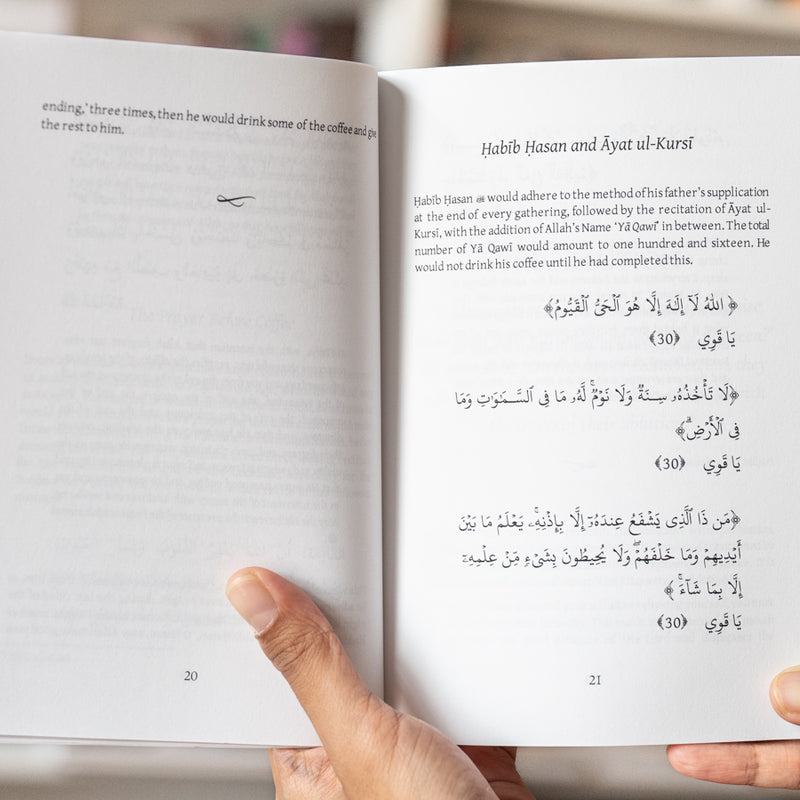 ending,’ three times, then he would drink some of the coffee and give
the rest to him.
20
Ḥabīb Ḥasan and Āyat ul-Kursī
Ḥabīb Ḥasan would adhere to the method of his father’s supplication
at the end of every gathering, followed by the recitation of Āyat ul-
Kursī, with the addition of Allah’s Name ‘Yā Qawī’ in between. The total
number of Yā Qawī would amount to one hundred and sixteen. He
would not drink his coffee until he had completed this.
﴿ اللهُ لَآ إِلَـٰهَ إِلَّا هُوَ ٱلْحَىُّ ٱلْقَيُّومُ﴾
يَا قَوِي ﴿30﴾
﴿لَا تَأْخُذُهُۥ سِنَةٌ وَلَا نَوْمٌۚ لَّهُۥ مَا فِى ٱلسَّمَـٰوَٰتِ وَمَا
فِى ٱلْأَرْضِۗ﴾
يَا قَوِي ﴿30﴾
﴿مَن ذَا ٱلَّذِى يَشْفَعُ عِندَهُۥٓ إِلَّا بِإِذْنِهِۦۚ يَعْلَمُ مَا بَيْنَ
أَيْدِيهِمْ وَمَا خَلْفَهُمْۖ وَلَا يُحِيطُونَ بِشَىْءٍ مِّنْ عِلْمِهِۦٓ
إِلَّا بِمَا شَآءَۚ ﴾
يَا قَوِي ﴿30﴾
21